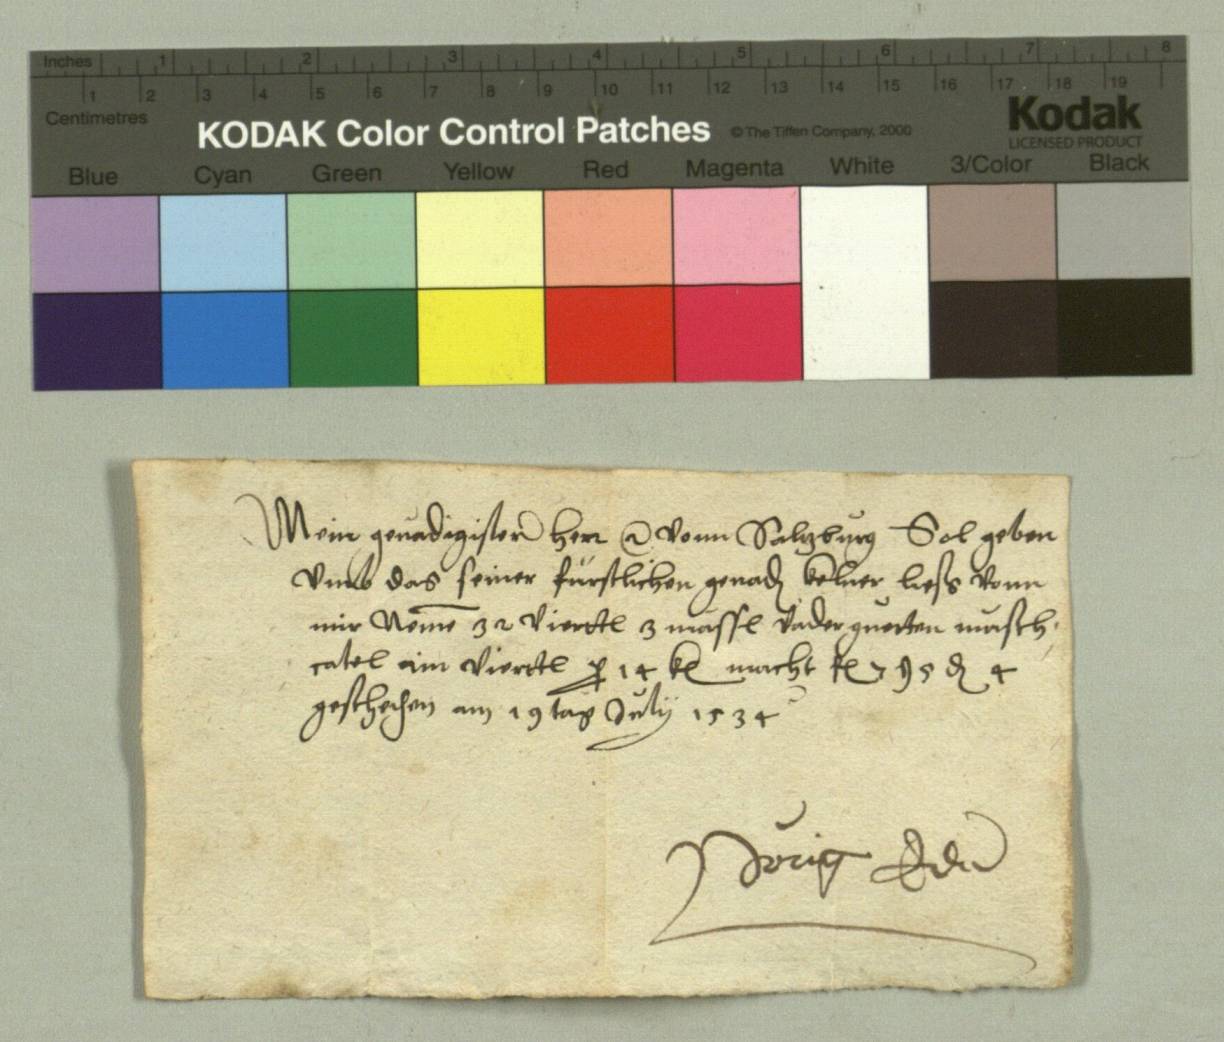 Inches 1 2 3 4 5 6 7 8
1 2 3 4 5 6 7 8 9 10 11 12 13 14 15 16 17 18 19
Centimetres
KODAK Color Control Patches © The Tiffen Company, 2000 Kodak
LICENSED PRODUCT
Blue Cyan Green Yellow Red Magenta White 3/Color Black
Mein genadigister herr vonn Salzburg Sol geben
vmb das seiner furstlichen genad kelner liess vonn
mir Neme 32 viertl 3 massl muscH
catel ain viertl 14 macht 5 4
geschechen am 19 tag July 1534